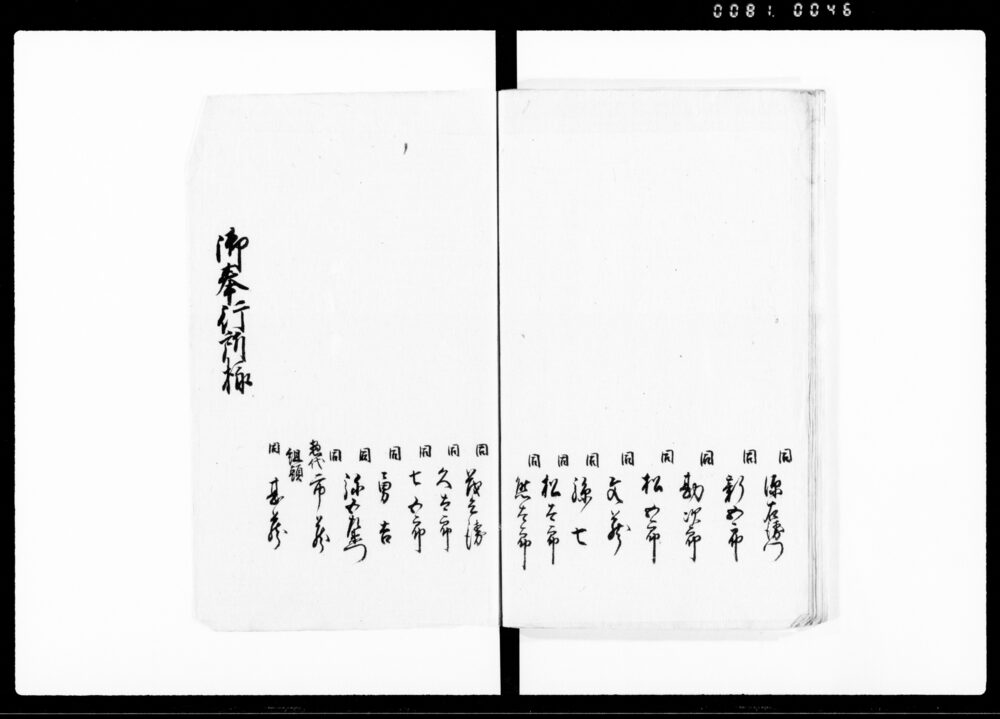 0081. 0046
同 源右衛門
同 新五郎
同 勘次郎
同 松五郎
同 文蔵
同 孫七
同 松太郎
同 熊太郎
同
同 久太郎
同 七五郎
同 勇吉
同
惣代 市蔵
組頭
同 甚蔵
御奉行所様